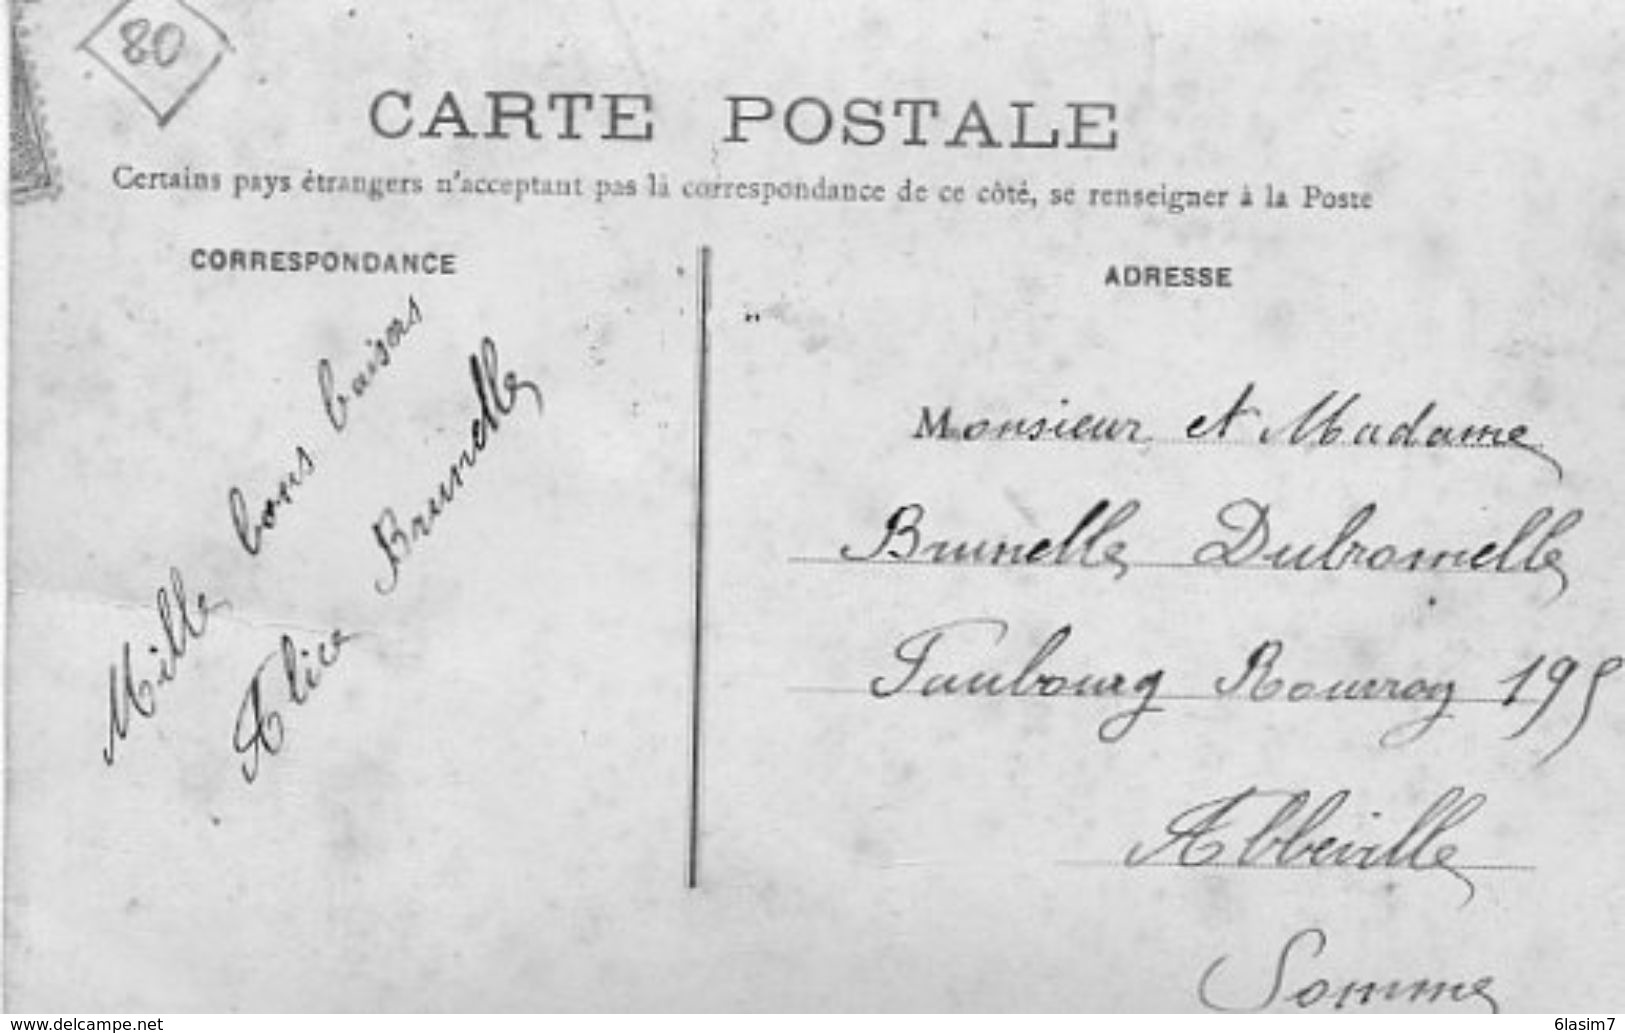 80
CARTE POSTALE
Certains pays étrangers n'acceptant pas la correspondance de ce côté, se renseigner à la Poste
CORRESPONDANCE
Mille bons baisers
Alice Brunelle
ADRESSE
Monsieur et Madame
Brunelle Dubromelle
Faubourg Rouvroy 195
Abbeville
Somme
www.delcampe.net
6lasim7